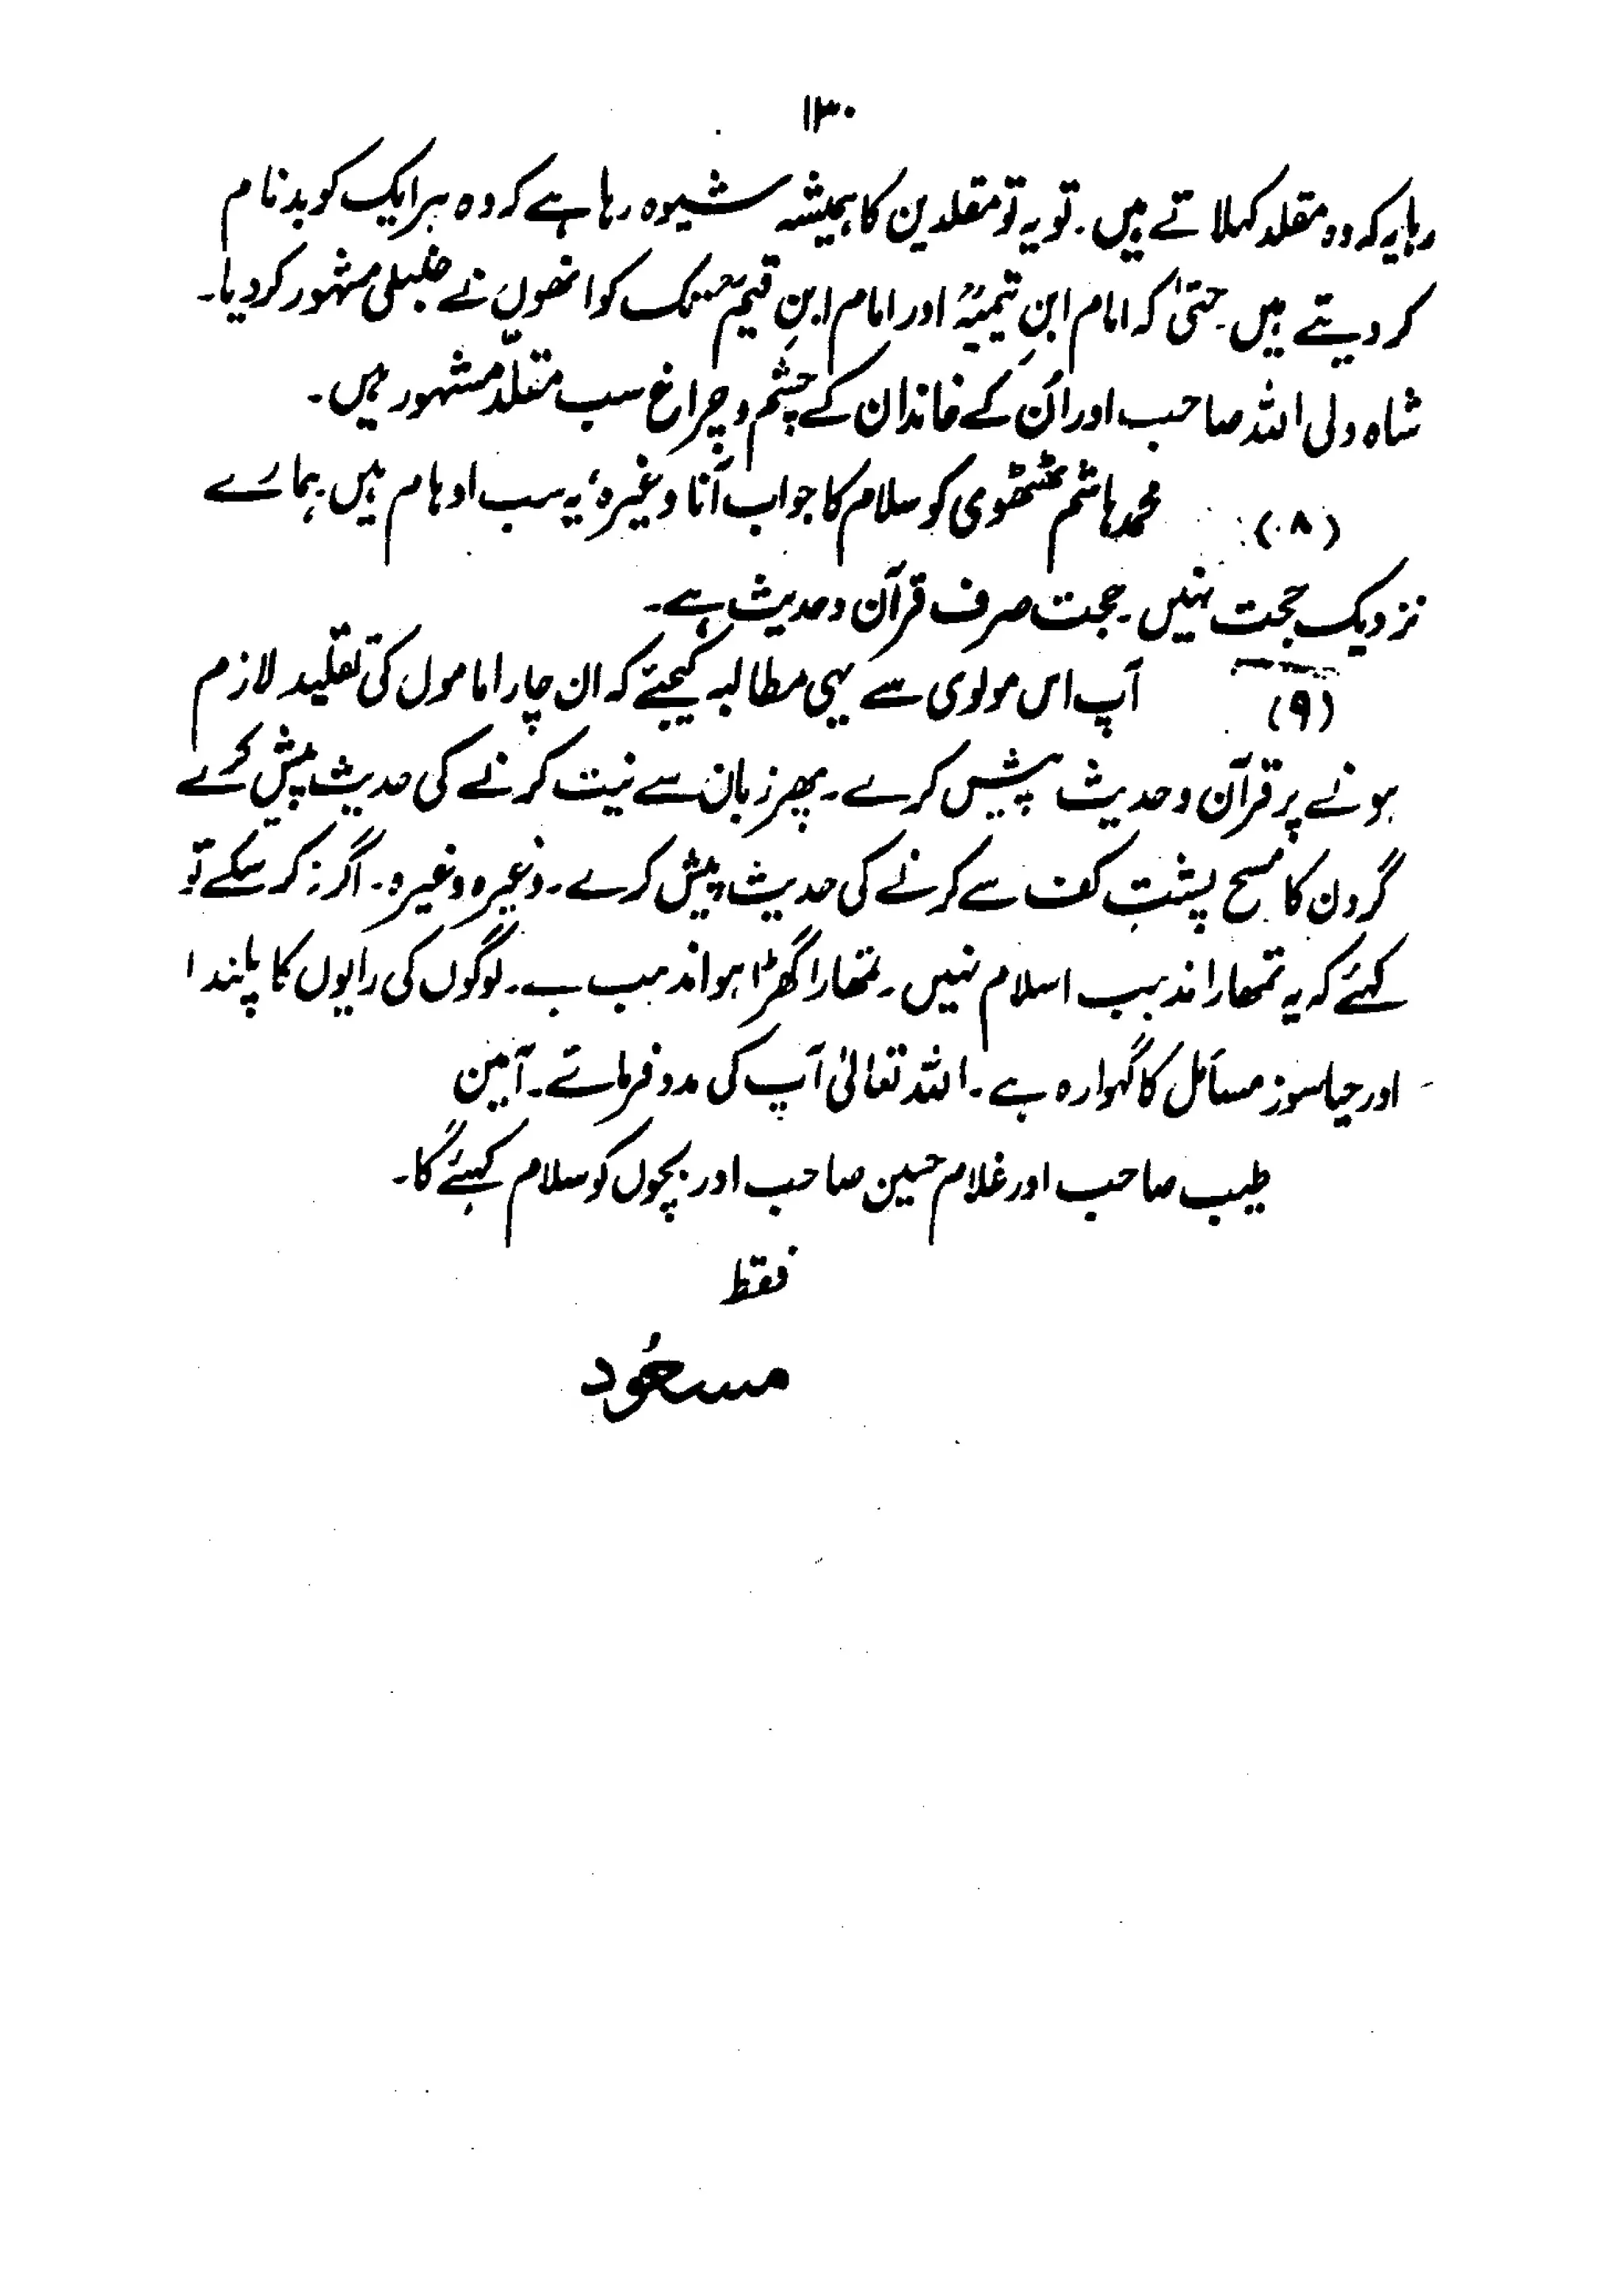 ۱۳۰
رہا یہ کہ وہ مقلد کہلاتے ہیں۔ تو یہ تو مقلدین کا ہمیشہ شیوہ رہا ہے کہ وہ ہر ایک کو بدنام
کر دیتے ہیں۔ حتیٰ کہ امام ابنِ تیمیہؒ اور امام ابنِ قیمؒ تک کو انھوں نے حنبلی مشہور کر دیا۔
شاہ ولی اللہ صاحب اور اُن کے خاندان کے چشم و چراغ سب مقلّد مشہور ہیں۔
(۸) محمد ہاشم ٹھٹھوی کو سلام کا جواب آنا وغیرہ، یہ سب اوہام ہیں ہمارے
نزدیک حجت نہیں۔ حجت صرف قرآن و حدیث ہے۔
(۹) آپ اس مولوی سے یہی مطالبہ کیجئے کہ ان چار اماموں کی تقلید لازم
ہونے پر قرآن و حدیث پیش کرے۔ پھر زبان سے نیت کرنے کی حدیث پیش کرے
گردن کا مسح پشتِ کف سے کرنے کی حدیث پیش کرے۔ وغیرہ وغیرہ۔ اگر نہ کر سکے تو
کہئے کہ یہ تمھارا مذہب اسلام نہیں۔ تمھارا گھڑا ہوا مذہب ہے۔ لوگوں کی رایوں کا پلندا
اور حیا سوز مسائل کا گہوارہ ہے۔ اللہ تعالیٰ آپ کی مدد فرمائے۔ آمین
طیب صاحب اور غلام حسین صاحب اور بچوں کو سلام کہئے گا۔
فقط
مسعُود